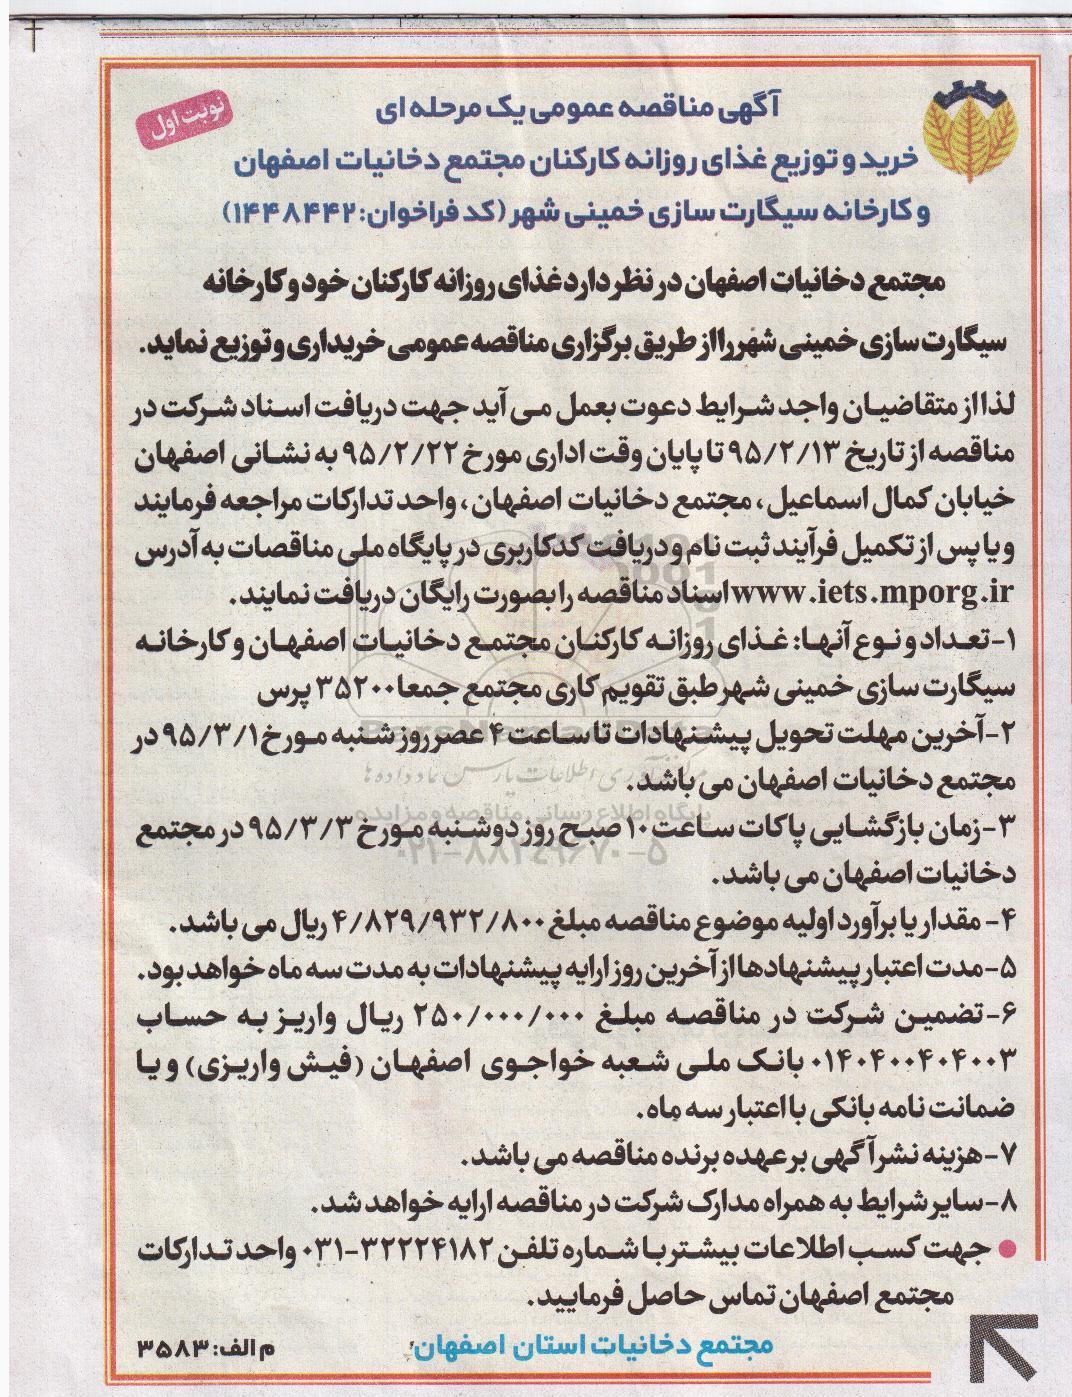 نوبت اول
آگهی مناقصه عمومی یک مرحله ای
خرید و توزیع غذای روزانه کارکنان مجتمع دخانیات اصفهان
و کارخانه سیگارت سازی خمینی شهر (کد فراخوان: ۱۴۴۸۴۴۲)
مجتمع دخانیات اصفهان در نظر دارد غذای روزانه کارکنان خود و کارخانه
سیگارت سازی خمینی شهر را از طریق برگزاری مناقصه عمومی خریداری و توزیع نماید.
لذا از متقاضیان واجد شرایط دعوت بعمل می آید جهت دریافت اسناد شرکت در
مناقصه از تاریخ ۹۵/۲/۱۳ تا پایان وقت اداری مورخ ۹۵/۲/۲۲ به نشانی اصفهان
خیابان کمال اسماعیل، مجتمع دخانیات اصفهان، واحد تدارکات مراجعه فرمایند
و یا پس از تکمیل فرآیند ثبت نام و دریافت کد کاربری در پایگاه ملی مناقصات به آدرس
www.iets.mporg.ir اسناد مناقصه را بصورت رایگان دریافت نمایند.
۱- تعداد و نوع آنها: غذای روزانه کارکنان مجتمع دخانیات اصفهان و کارخانه
سیگارت سازی خمینی شهر طبق تقویم کاری مجتمع جمعا ۳۵۲۰۰ پرس
۲- آخرین مهلت تحویل پیشنهادات تا ساعت ۴ عصر روز شنبه مورخ ۹۵/۳/۱ در
مجتمع دخانیات اصفهان می باشد.
۳- زمان بازگشایی پاکات ساعت ۱۰ صبح روز دوشنبه مورخ ۹۵/۳/۳ در مجتمع
دخانیات اصفهان می باشد.
۴- مقدار یا برآورد اولیه موضوع مناقصه مبلغ ۴/۸۲۹/۹۳۲/۸۰۰ ریال می باشد.
۵- مدت اعتبار پیشنهادها از آخرین روز ارایه پیشنهادات به مدت سه ماه خواهد بود.
۶- تضمین شرکت در مناقصه مبلغ ۲۵۰/۰۰۰/۰۰۰ ریال واریز به حساب
۰۱۴۰۴۰۰۴۰۴۰۰۳ بانک ملی شعبه خواجوی اصفهان (فیش واریزی) و یا
ضمانت نامه بانکی با اعتبار سه ماه.
۷- هزینه نشر آگهی بر عهده برنده مناقصه می باشد.
۸- سایر شرایط به همراه مدارک شرکت در مناقصه ارایه خواهد شد.
● جهت کسب اطلاعات بیشتر با شماره تلفن ۳۲۲۲۴۱۸۲-۰۳۱ واحد تدارکات
مجتمع اصفهان تماس حاصل فرمایید.
مجتمع دخانیات استان اصفهان
م الف: ۳۵۸۳
پایگاه اطلاع رسانی مناقصه و مزایده